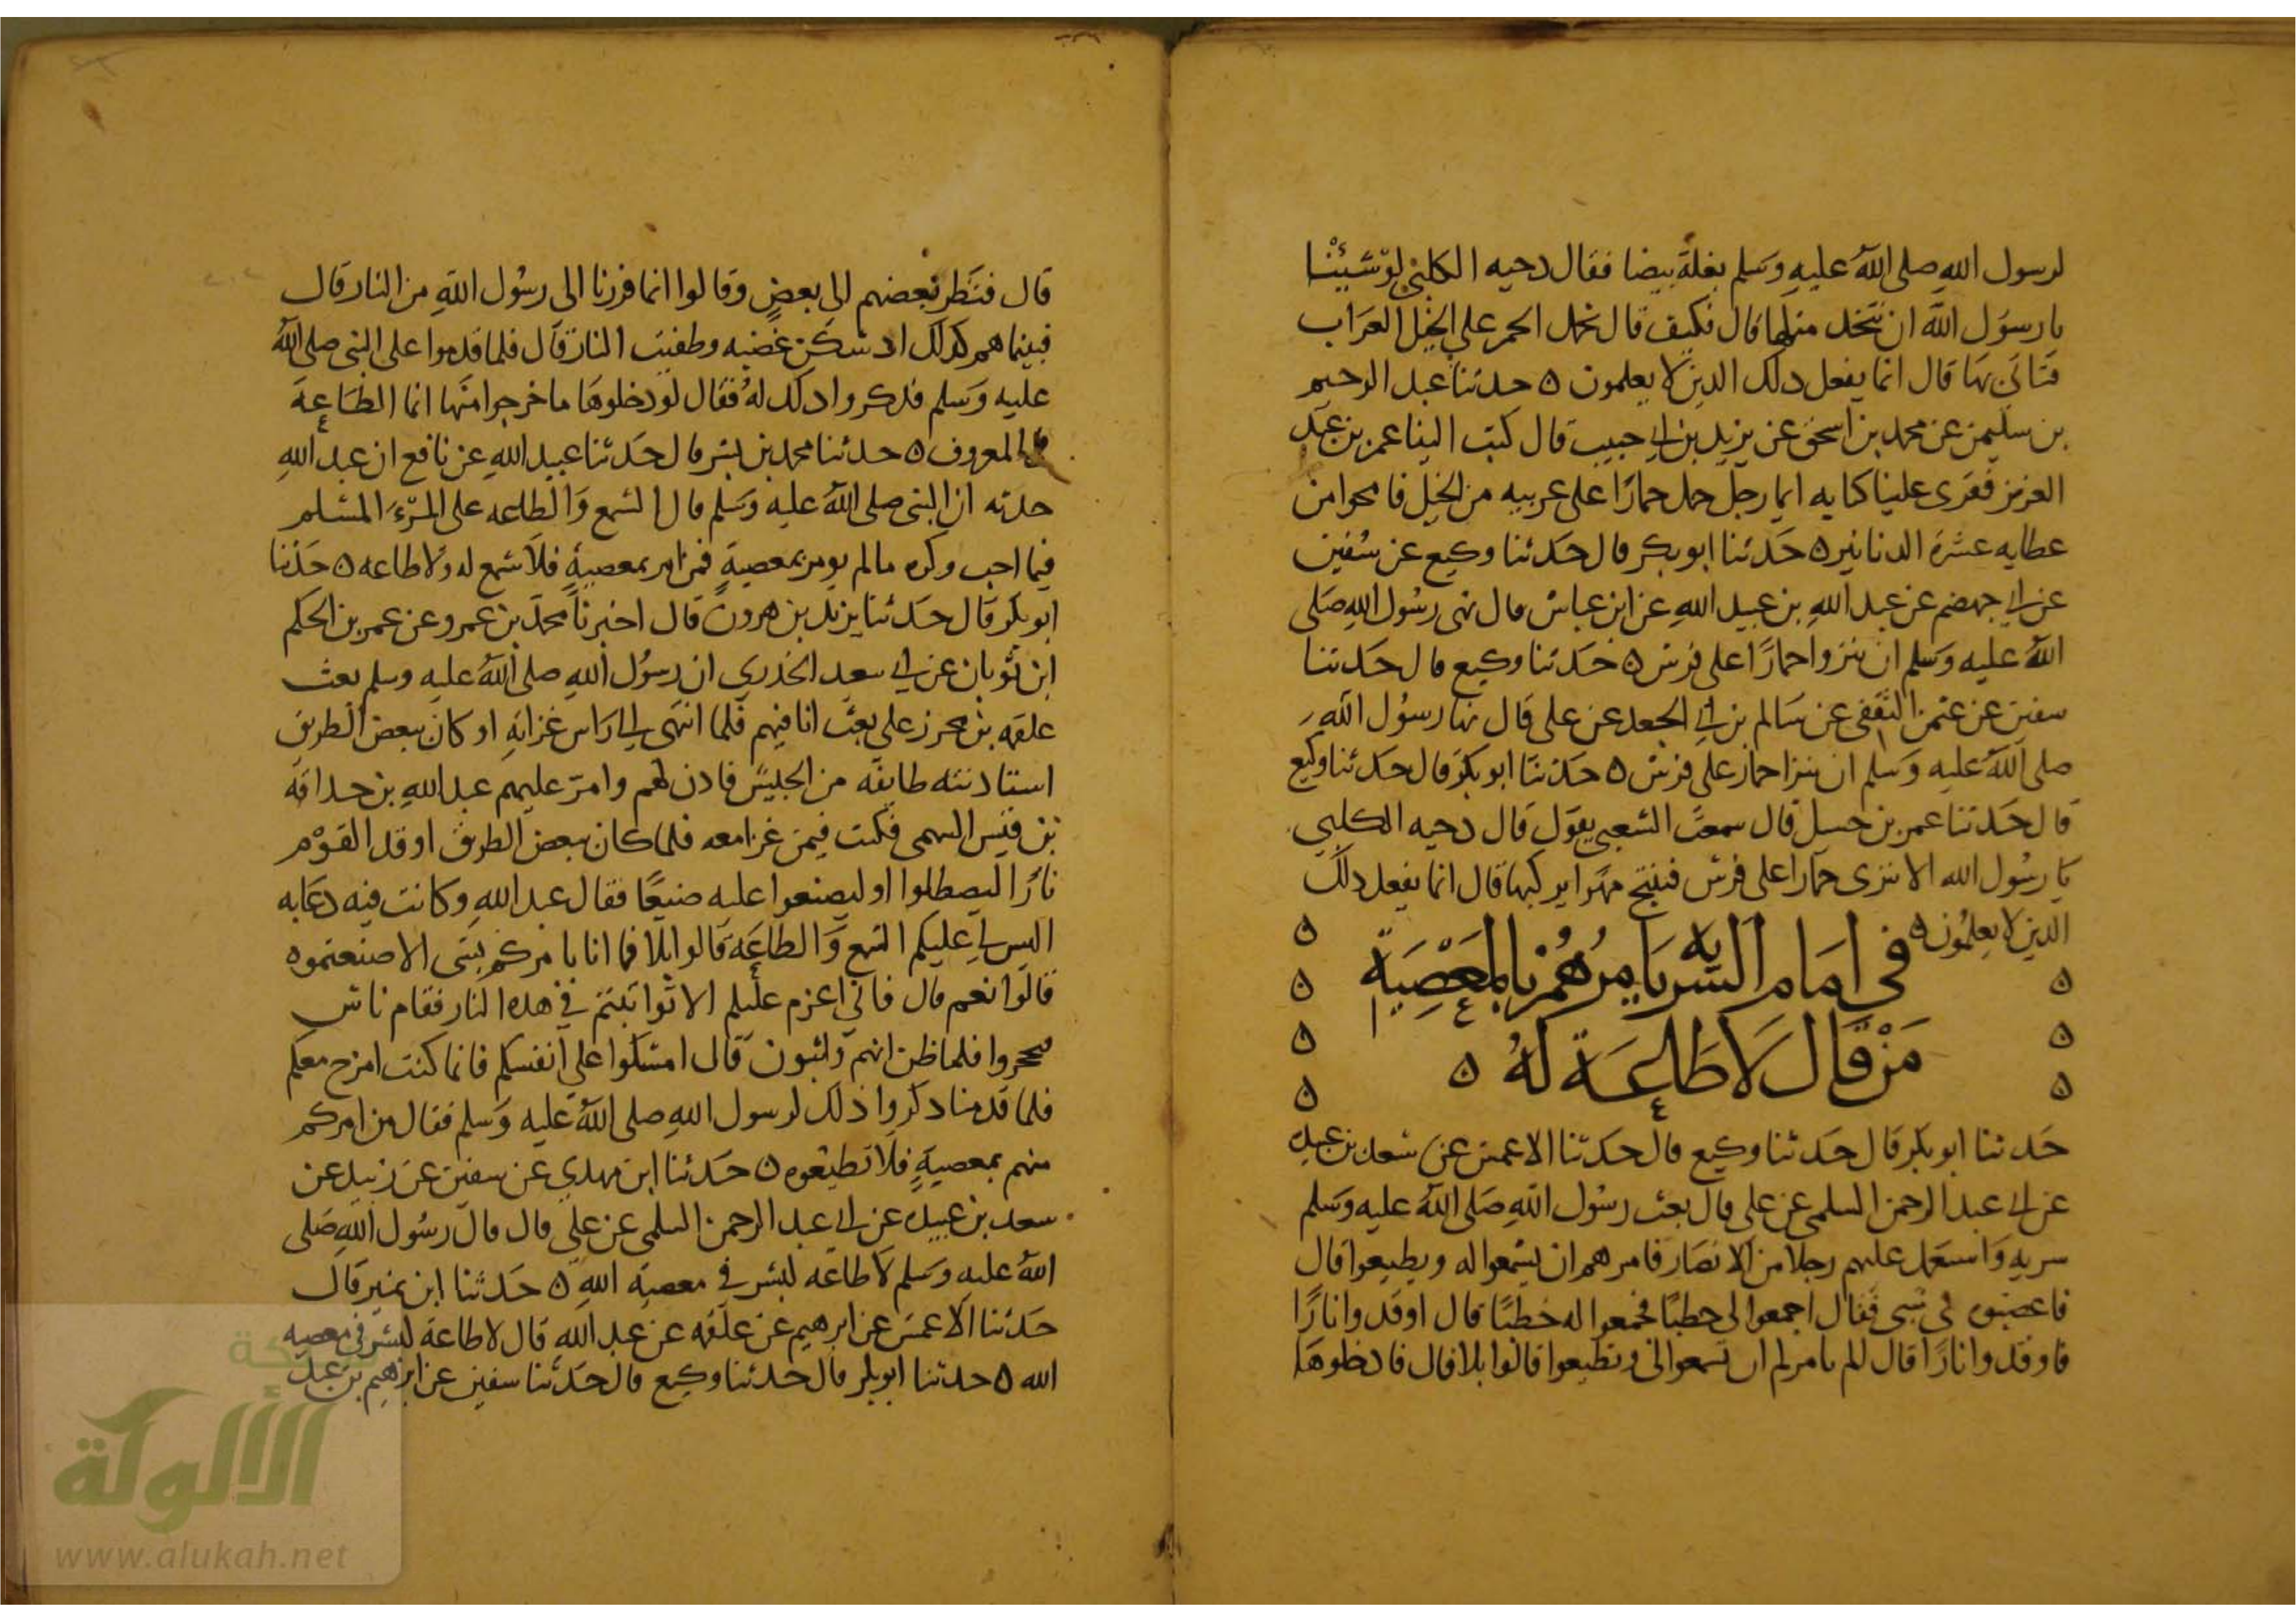 لرسول الله صلى الله عليه وسلم بغلة بيضا فقال دحيه الكلبي لو شئنا
يا رسول الله ان نتخذ مثلها قال فكيف قال نحمل الحمر على الخيل العراب
فتاتي بها قال انما يفعل ذلك الذين لا يعلمون ه حدثنا عبد الرحيم
بن سليمن عن محمد بن اسحق عن يزيد بن ابي حبيب قال كتب الينا عمر بن عبد
العزيز فقرى علينا كتابه ايما رجل حمل حمارا على عربيه من الخيل فامحوا من
عطايه عشرة الدنانير ه حدثنا ابو بكر قال حدثنا وكيع عن سفين
عن ابي جهضم عن عبد الله بن عبيد الله عن ابن عباس قال نهى رسول الله صلى
الله عليه وسلم ان ننزوا حمارا على فرس ه حدثنا وكيع قال حدثنا
سفين عن عثمن الثقفي عن سالم بن ابي الجعد عن على قال نها رسول الله
صلى الله عليه وسلم ان ننزا حمار على فرس ه حدثنا ابو بكر قال حدثنا وكيع
قال حدثنا عمر بن حسيل قال سمعت الشعبي يقول قال دحيه الكلبي
يا رسول الله الا ننزى حمارا على فرس فننتج مهرا يركبها قال انما يفعل ذلك
الذين لا يعلمون ه
في امام السريه يامرهم بالمعصية
من قال لا طاعة له ه
حدثنا ابو بكر قال حدثنا وكيع قال حدثنا الاعمش عن سعد بن عبيده
عن ابي عبد الرحمن السلمي عن على قال بعث رسول الله صلى الله عليه وسلم
سريه واستعمل عليهم رجلا من الانصار فامرهم ان يسمعوا له ويطيعوا قال
فاغضبوه في شي فقال اجمعوا لي حطبا فجمعوا له حطبا قال اوقدوا نارا
فاوقدوا نارا قال الم يامركم ان تسمعوا لي وتطيعوا قالوا بلا قال فادخلوها
قال فنظر بعضهم الى بعض وقالوا انما فررنا الى رسول الله من النار قال
فبينما هم كذلك اذ سكن غضبه وطفيت النار قال فلما قدموا على النبي صلى الله
عليه وسلم فذكروا ذلك له فقال لو دخلوها ما خرجوا منها انما الطاعة
في المعروف ه حدثنا محمد بن بشر قال حدثنا عبيد الله عن نافع ان عبد الله
حدثه ان النبي صلى الله عليه وسلم قال السمع والطاعه على المرء المسلم
فيما احب وكره ما لم يومر بمعصية فمن امر بمعصية فلا سمع له ولا طاعه ه حدثنا
ابو بكر قال حدثنا يزيد بن هرون قال اخبرنا محمد بن عمرو عن عمر بن الحكم
ابن ثوبان عن ابي سعيد الخدري ان رسول الله صلى الله عليه وسلم بعث
علقمه بن محرز على بعث انا فيهم فلما انتهى الى راس غزاته او كان ببعض الطريق
استاذنته طايفه من الجيش فاذن لهم وامر عليهم عبد الله بن حذافه
بن قيس السهمي فكنت فيمن غزا معه فلما كان ببعض الطريق اوقد القوم
نارا ليصطلوا او ليصنعوا عليه صنيعا فقال عبد الله وكانت فيه دعابه
اليس لي عليكم السمع والطاعة قالوا بلا قال فما انا بامركم بشى الا صنعتموه
قالوا نعم قال فاني اعزم عليكم الا تواثبتم في هذه النار فقام ناس
فتحجزوا فلما ظن انهم واثبون قال امسكوا على انفسكم فانما كنت امزح معكم
فلما قدمنا ذكروا ذلك لرسول الله صلى الله عليه وسلم فقال من امركم
منهم بمعصية فلا تطيعوه ه حدثنا ابن مهدي عن سفين عن زبيد عن
سعد بن عبيده عن ابي عبد الرحمن السلمي عن علي قال قال رسول الله صلى
الله عليه وسلم لا طاعه لبشر في معصيه الله ه حدثنا ابن نمير قال
حدثنا الاعمش عن ابرهيم عن علقمه عن عبد الله قال لا طاعة لبشر في معصيه
الله ه حدثنا ابو بكر قال حدثنا وكيع قال حدثنا سفين عن ابرهيم بن عبد
شبكة
الألوكة
www.alukah.net